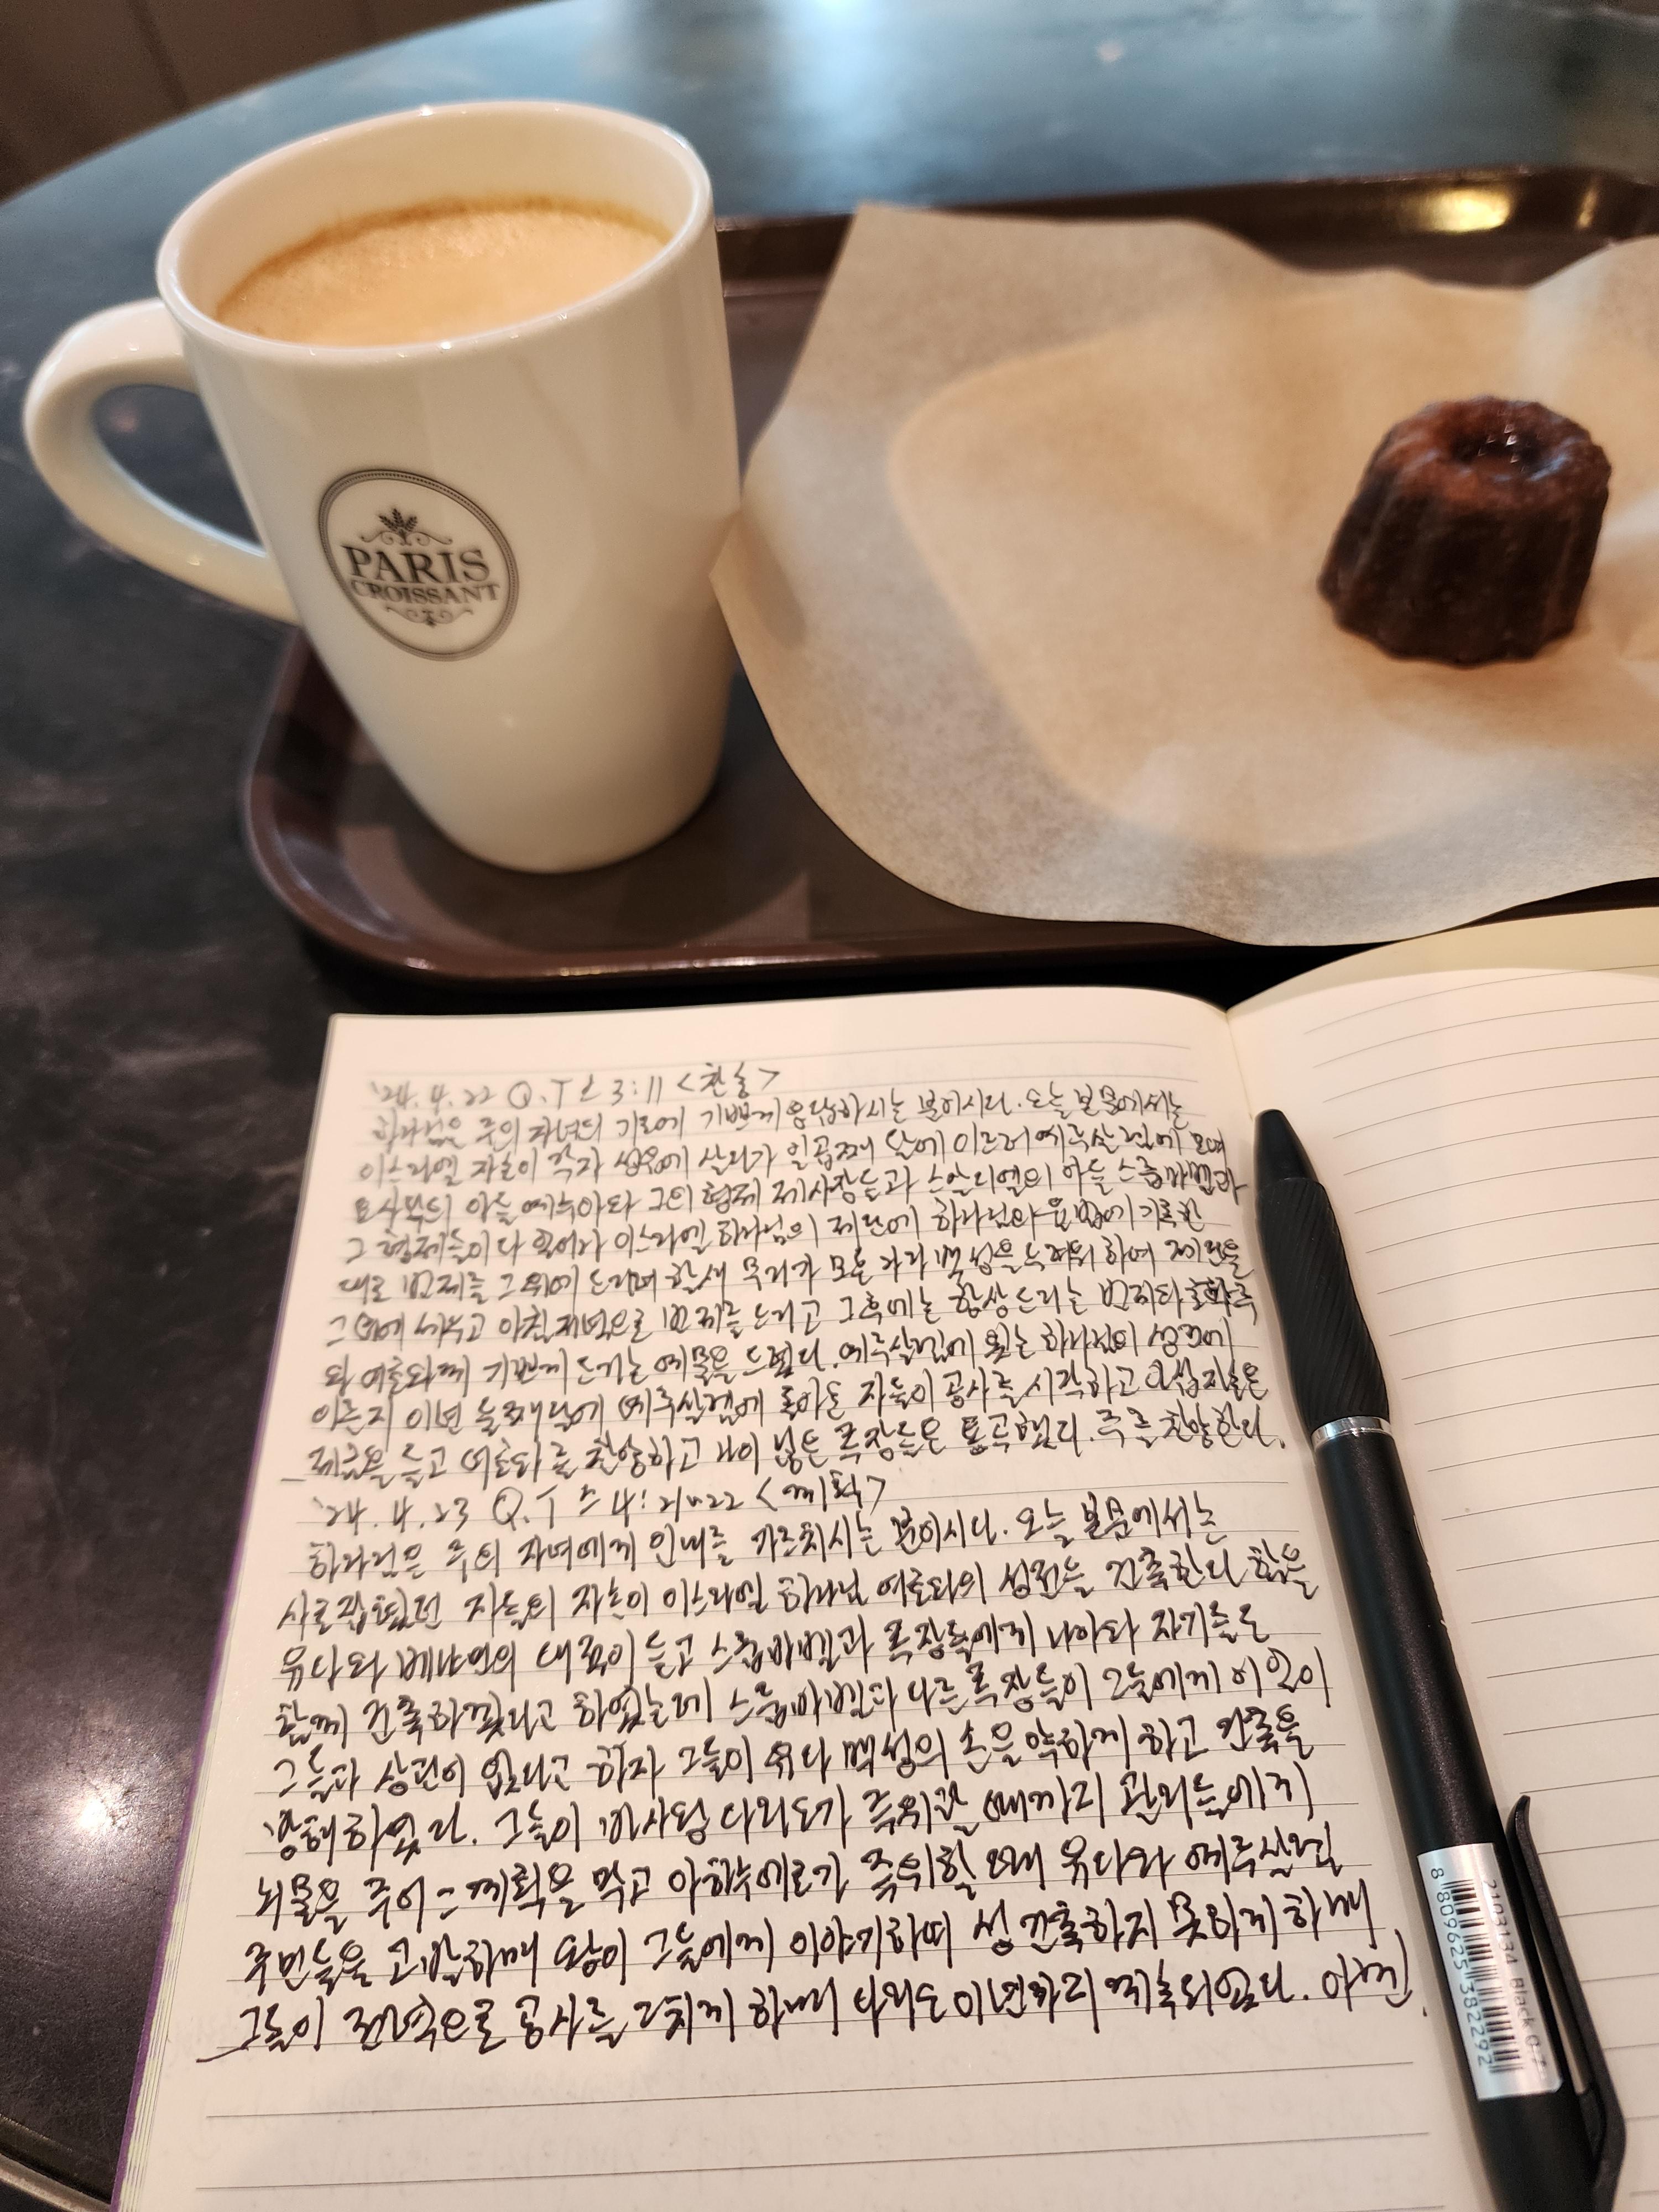 PARIS
CROISSANT
'24. 4. 22 Q.T 스 3:11 <찬송>
하나님은 주의 자녀의 기도에 기쁘게 응답하시는 분이시다. 오늘 본문에서는
이스라엘 자손이 각자 성읍에 살다가 일곱째 달에 이르러 예루살렘에 모여
요사닥의 아들 예수아와 그의 형제 제사장들과 스알디엘의 아들 스룹바벨과
그 형제들이 다 일어나 이스라엘 하나님의 제단에 하나님의 율법에 기록한
대로 번제를 그 위에 드리며 할새 무리가 모든 나라 백성을 두려워 하여 제단을
그 터에 세우고 아침 저녁으로 번제를 드리고 그후에는 항상 드리는 번제와 초하루
와 여호와께 기쁘게 드리는 예물을 드렸다. 예루살렘에 있는 하나님의 성전에
이른지 이년 둘째 달에 예루살렘에 돌아온 자들이 공사를 시작하고 제사장들은
나팔을 들고 여호와를 찬양하고 나이 많은 족장들은 통곡했다. 주를 찬양한다.
'24. 4. 23 Q.T 스 4:21~22 <계획>
하나님은 주의 자녀에게 인내를 가르치시는 분이시다. 오늘 본문에서는
사로잡혔던 자들의 자손이 이스라엘 하나님 여호와의 성전을 건축한다 함을
유다와 베냐민의 대적이 듣고 스룹바벨과 족장들에게 나아와 자기들도
함께 건축하겠다고 하였는데 스룹바벨과 다른 족장들이 그들에게 이 일이
그들과 상관이 없다고 하자 그들이 유다 백성의 손을 약하게 하고 건축을
방해하였다. 그들이 바사왕 다리오가 즉위할 때까지 관리들에게
뇌물을 주어 그 계획을 막고 아하수에로가 즉위할 때에 유다와 예루살렘
주민들을 고발하매 왕이 그들에게 이야기하며 성 건축하지 못하게 하매
그들이 권력으로 공사를 그치게 하매 다리오 이년까지 계속되었다. 아멘.
2103134 Black 0.7
8 809625 382292